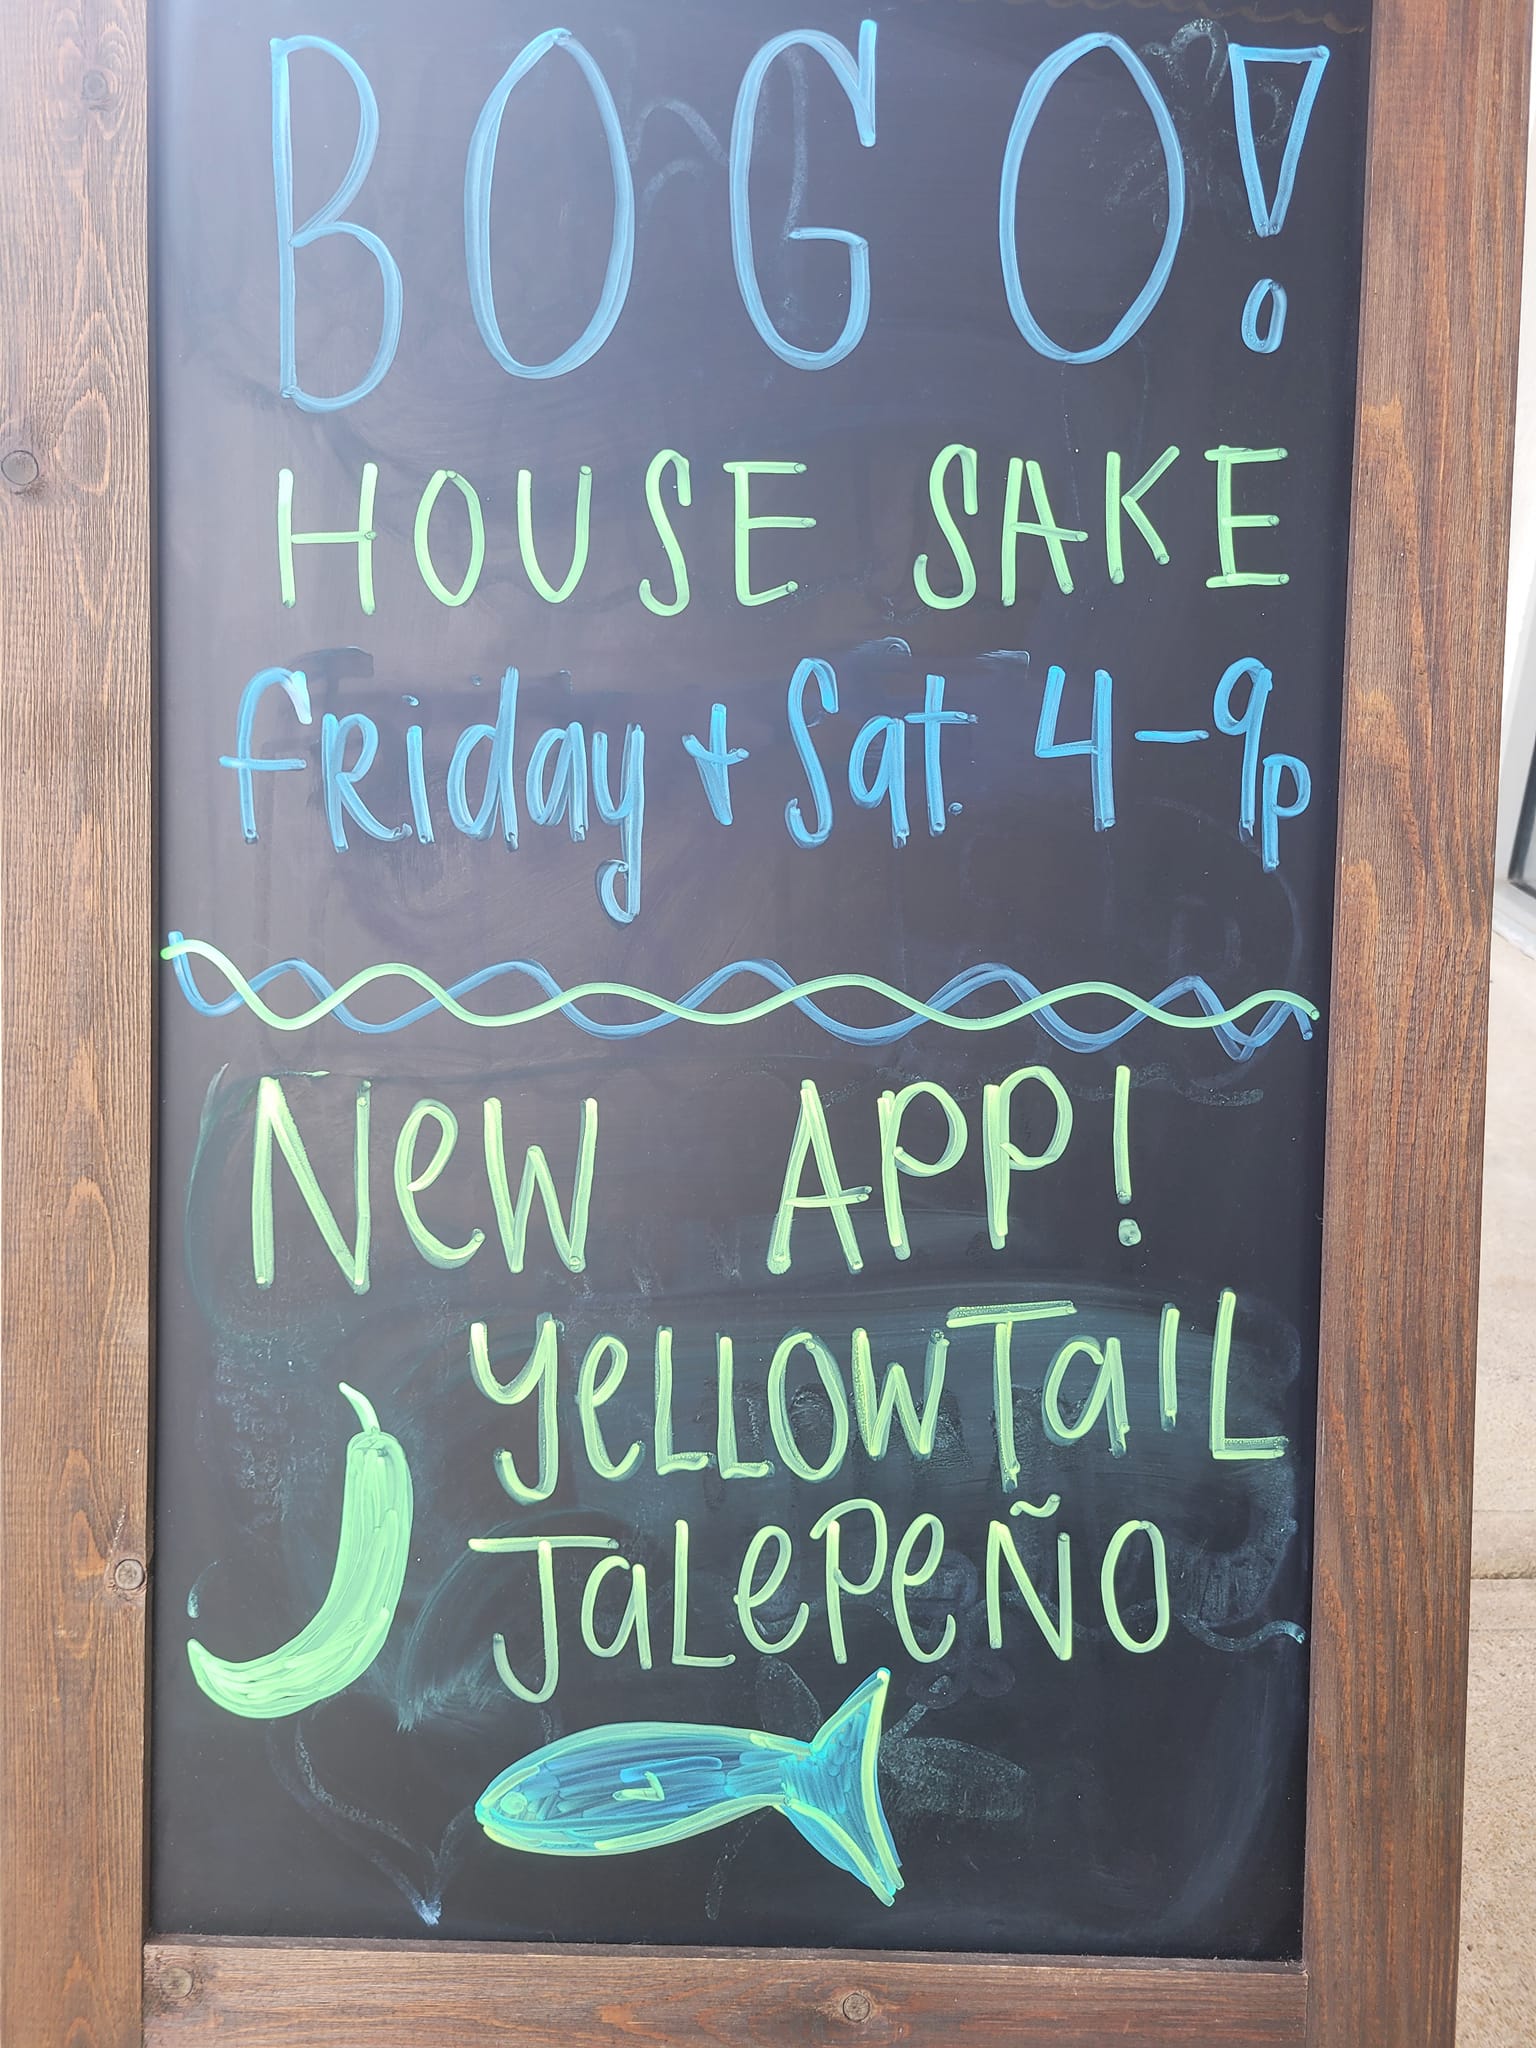 BOGO!
HOUSE SAKE
Friday + Sat. 4-9p
New APP!
YeLLOWTaIL
JaLePeÑO